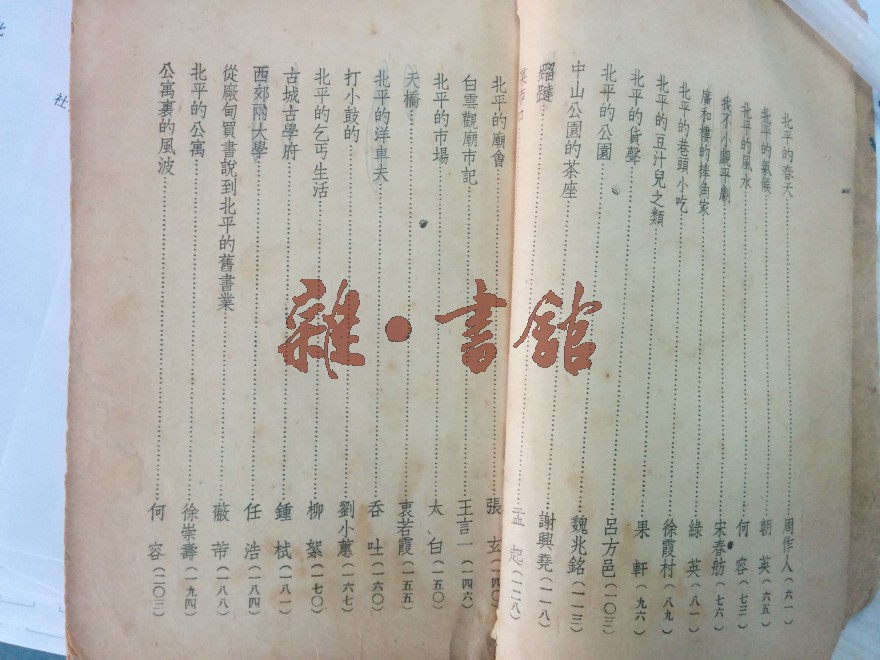 北平的春天……周作人(六一)
北平的氣候……朝英(六五)
北平的風水……何容(七三)
我不小覷平劇……宋春舫(七六)
廣和樓的捧角家……綠英(八一)
北平的巷頭小吃……徐霞村(八九)
北平的豆汁兒之類……果軒(九六)
北平的貨聲
北平的公園……呂方邑(一〇三)
中山公園的茶座……魏兆銘(一一三)
謝興堯(一一八)
孟起(一二八)
北平的廟會……張玄(一四〇)
白雲觀廟市記……王言一(一四六)
北平的市場……太白(一五〇)
天橋……衷若霞(一五五)
北平的洋車夫……吞吐(一六〇)
打小鼓的……劉小蕙(一六七)
北平的乞丐生活……柳絮(一七〇)
古城古學府……鍾棫(一八一)
西郊兩大學……任浩(一八四)
從廠甸買書說到北平的舊書業……蔽芾(一八八)
北平的公寓……徐崇壽(一九四)
公寓裏的風波……何容(二〇三)
雜·書館
社